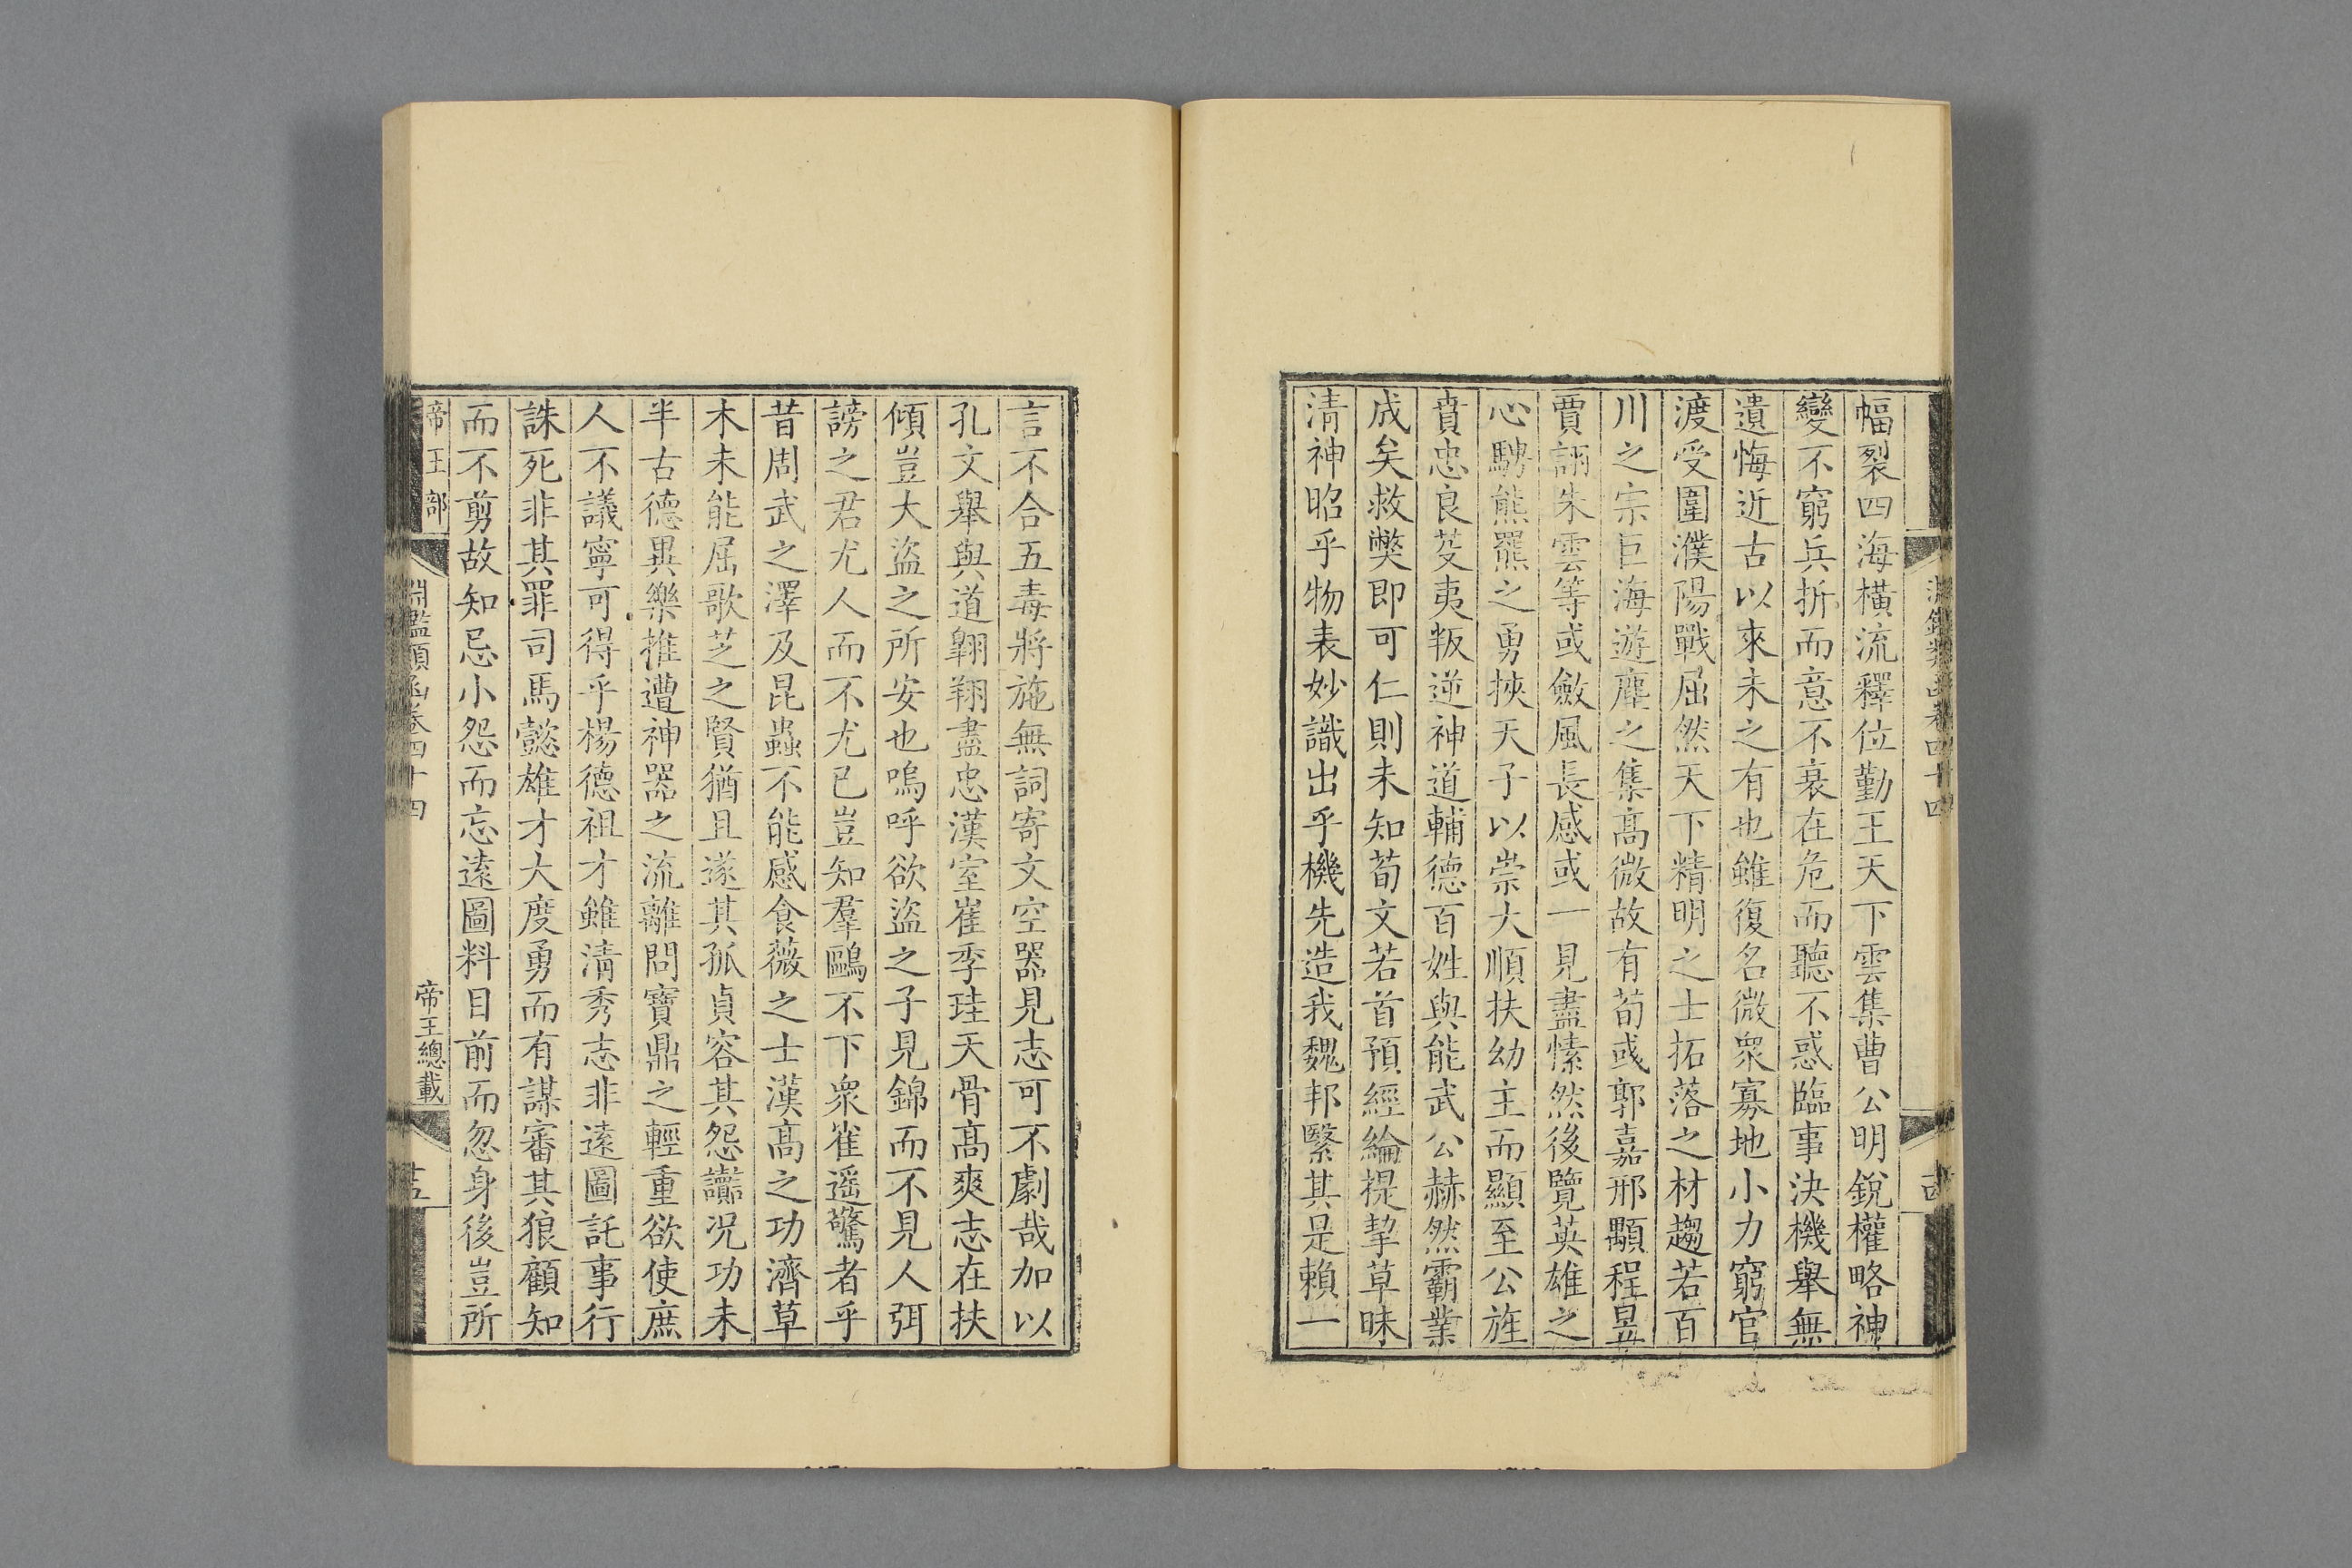 幅裂四海橫流釋位勤王天下雲集曹公明銳權略神
變不窮兵折而意不衰在危而聽不惑臨事決機舉無
遺悔近古以來未之有也雖復名微衆寡地小力窮官
渡受圍濮陽戰屈然天下精明之士拓落之材趨若百
川之宗巨海遊塵之集高微故有荀彧郭嘉邢顒程昱
賈詡朱雲等或斂風長感或一見盡愫然後覽英雄之
心騁熊羆之勇挾天子以崇大順扶幼主而顯至公旌
賁忠良芟夷叛逆神道輔德百姓與能武公赫然霸業
成矣救弊即可仁則未知荀文若首預經綸提挈草昧
清神昭乎物表妙識出乎機先造我魏邦繄其是賴一
言不合五毒將施無詞寄文空器見志可不劇哉加以
孔文舉與道翺翔盡忠漢室崔季珪天骨高爽志在扶
傾豈大盜之所安也嗚呼欲盜之子見錦而不見人弭
謗之君尤人而不尤已豈知羣鷗不下衆雀遥驚者乎
昔周武之澤及昆蟲不能感食薇之士漢高之功濟草
木未能屈歌芝之賢猶且遂其孤貞容其怨讟况功未
半古德異樂推遭神器之流離問寶鼎之輕重欲使庶
人不議寧可得乎楊德祖才雖清秀志非遠圖託事行
誅死非其罪司馬懿雄才大度勇而有謀審其狼顧知
而不剪故知忌小怨而忘遠圖料目前而忽身後豈所
帝王部
淵鑑類函卷四十四
帝王總載